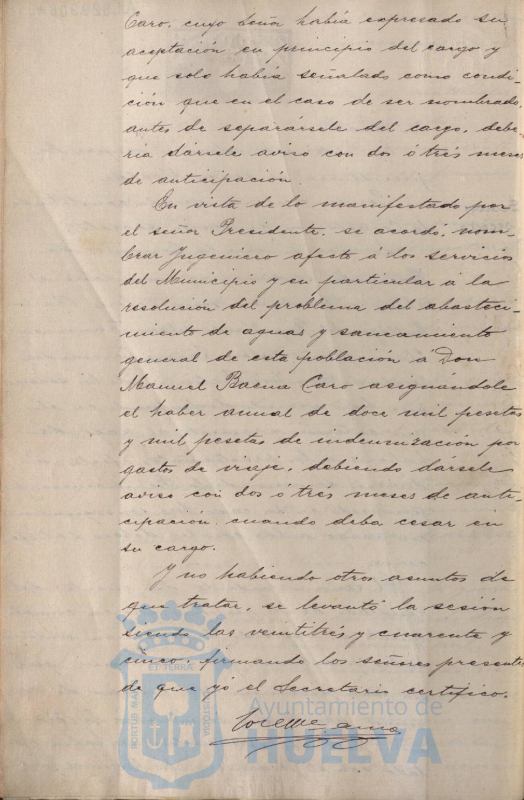 Caro, cuyo Señor había expresado su
aceptación en principio del cargo y
que solo había señalado como condi-
ción que en el caso de ser nombrado,
antes de separársele del cargo, debe-
ría dársele aviso con dos ó tres meses
de anticipación.
En vista de lo manifestado por
el señor Presidente, se acordó, nom-
brar Ingeniero afecto á los servicios
del Municipio y en particular á la
resolución del problema del abasteci-
miento de aguas y saneamiento
general de esta población á Don
Manuel Baena Caro asignándole
el haber anual de doce mil pesetas
y mil pesetas de indemnización por
gastos de viaje, debiendo dársele
aviso con dos ó tres meses de anti-
cipación cuando deba cesar en
su cargo.
Y no habiendo otros asuntos de
que tratar, se levantó la sesión
siendo las veintitrés y cuarenta y
cinco, firmando los señores presentes
de que yó el Secretario certifico.
Ayuntamiento de
HUELVA
ET TERRA
PORTUS MARIS
CUSTODIA